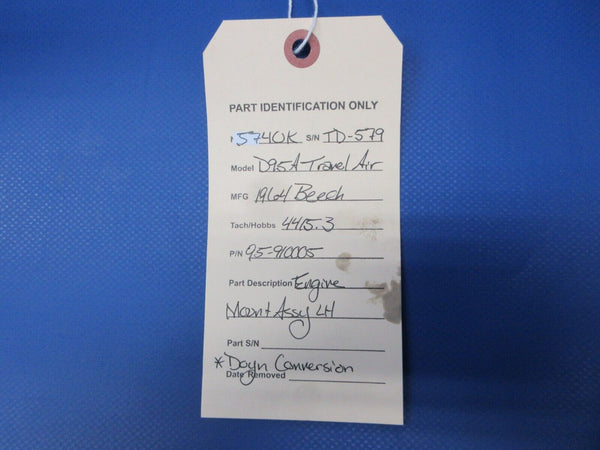 PART IDENTIFICATION ONLY
5740K S/N TD-579
Model D95A Travel Air
MFG 1964 Beech
Tach/Hobbs 4415.3
P/N 95-910005
Part Description Engine
Mount Assy LH
Part S/N
* Doyn Conversion
Date Removed